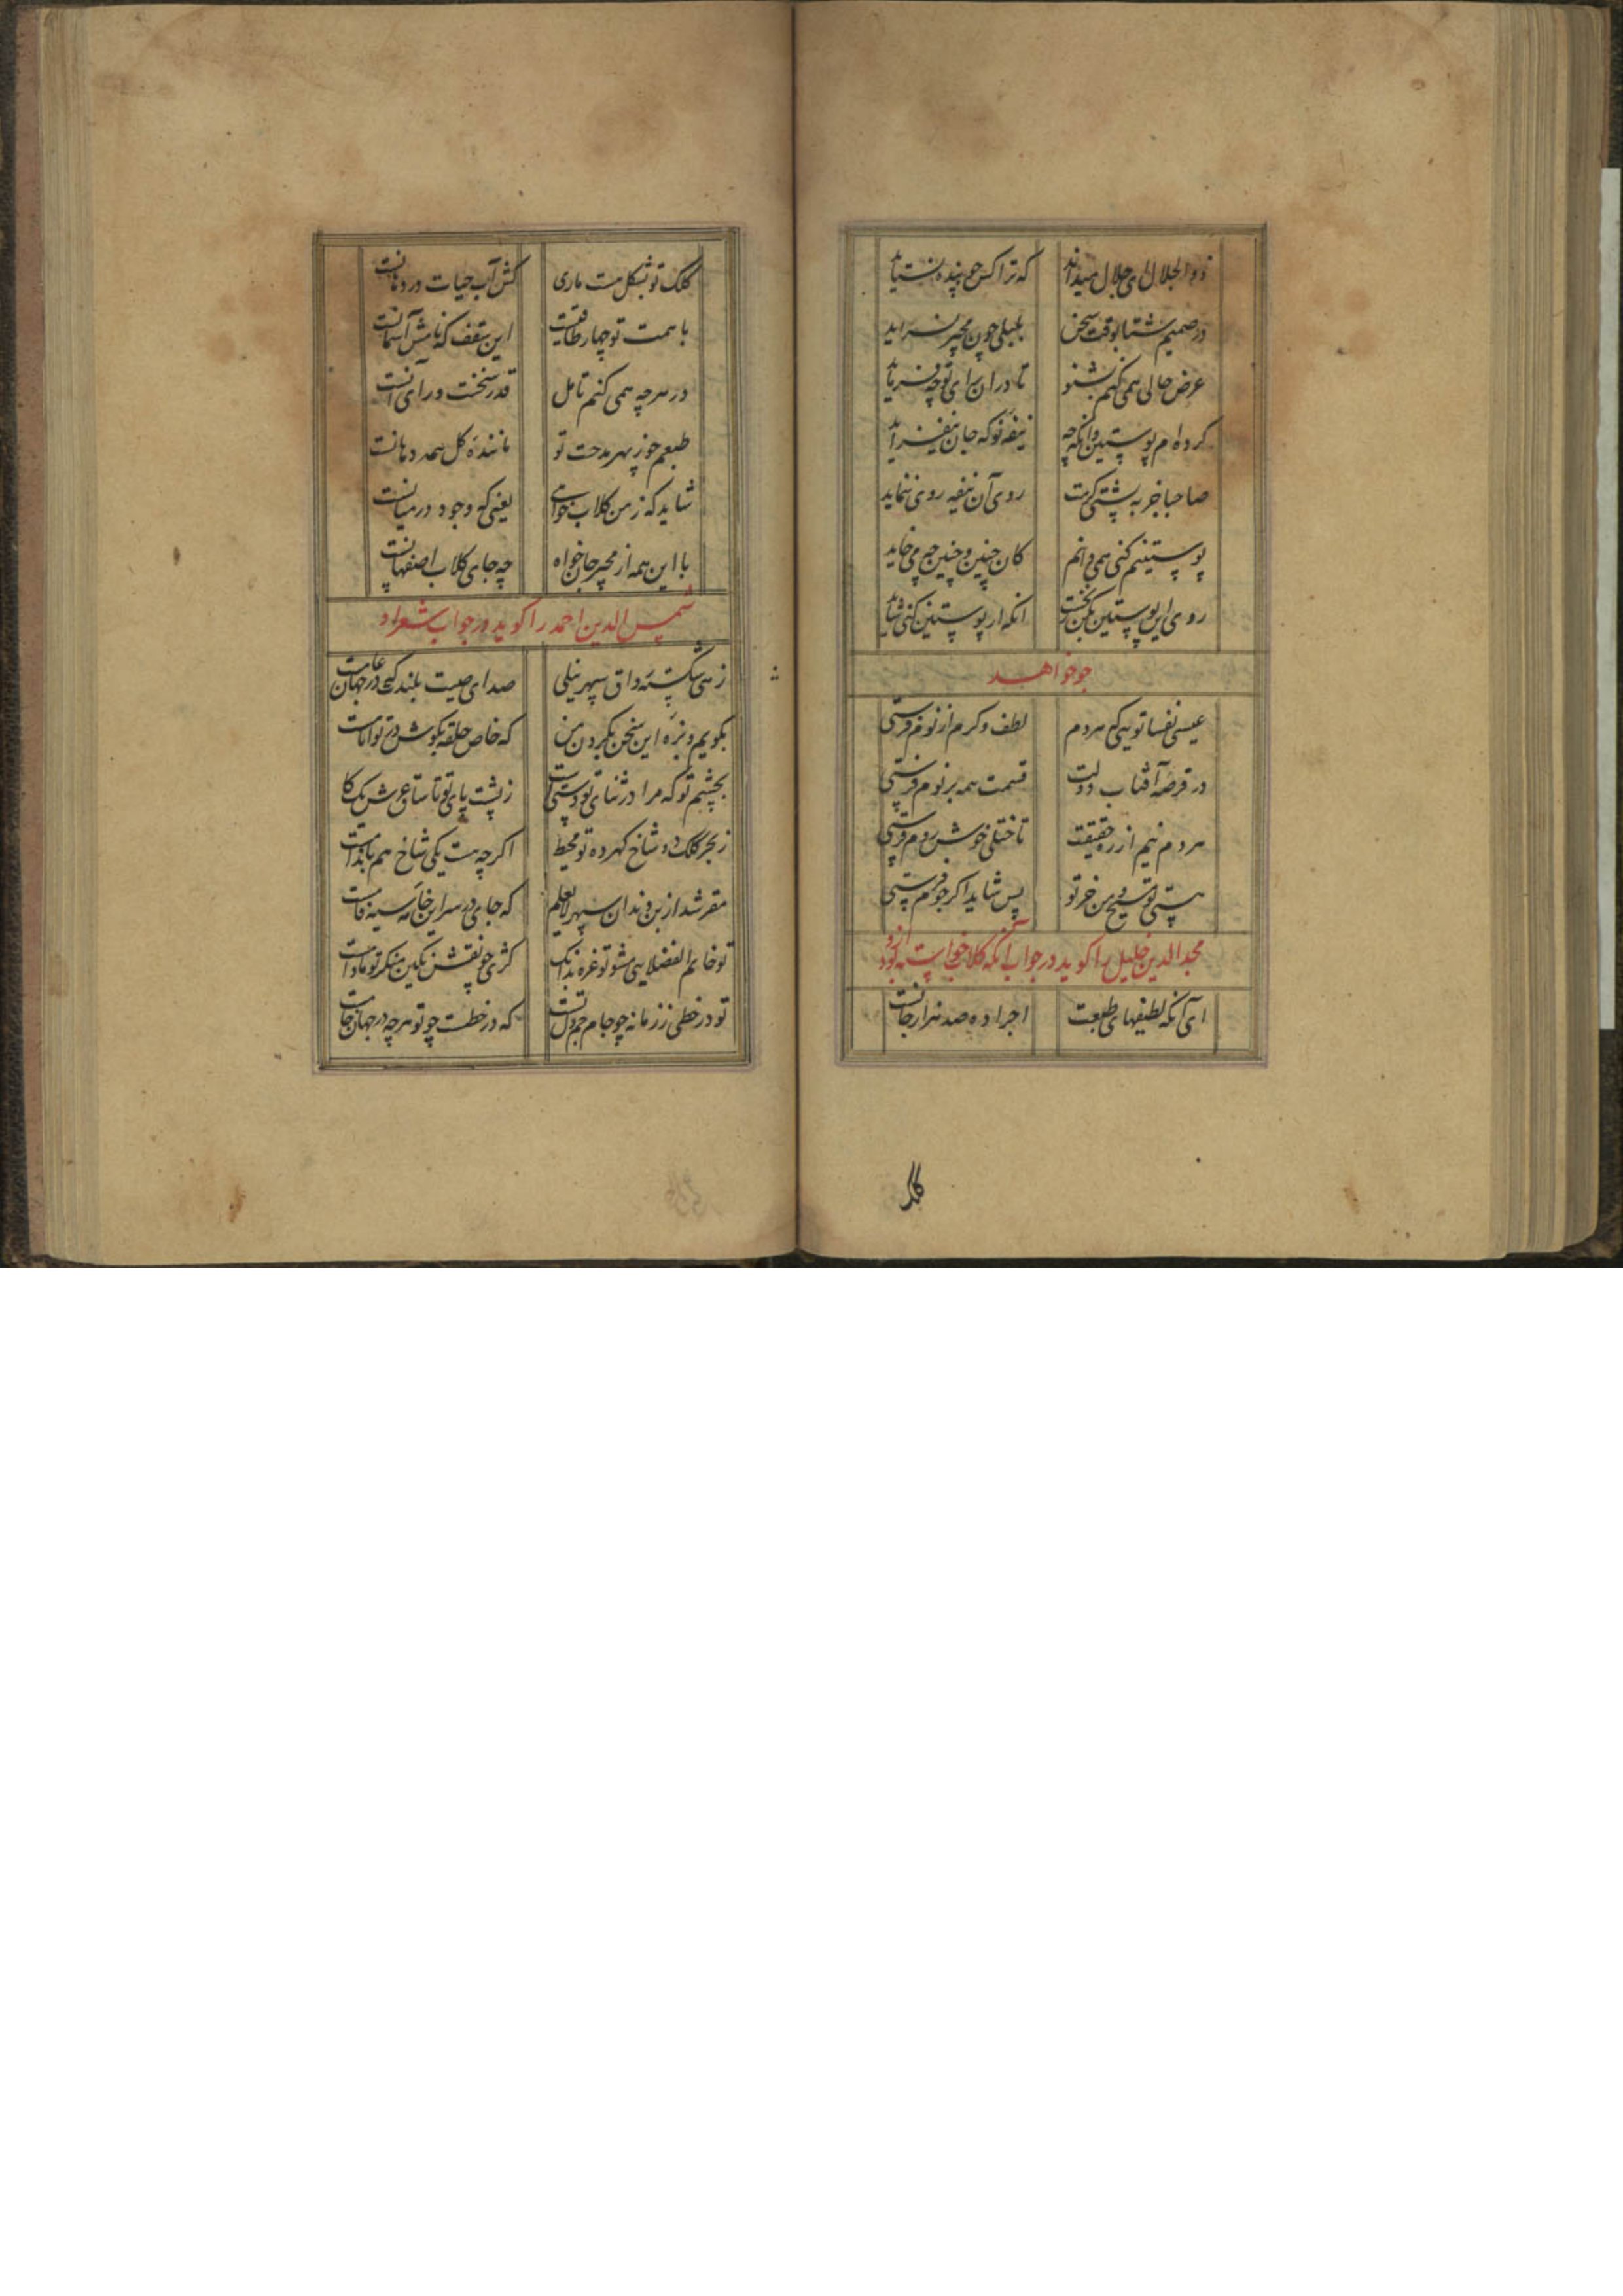 ذو الجلال ای جلال میداند که ترا کس چو بنده نستاید
در صمیم شتا بوقت سخن بلبلی چون مجیر نسراید
عرض حالی همی کنم بشنو تا در ان رای تو چه فرماید
کرده ام پوستین وانکه چه نیفه نو که جان بیفزاید
صاحبا جز به پشتی کرمت روی آن نیفه روی ننماید
پوستینم کنی همی دانم کان چنین و چنین چه می خاید
روی این پوستین بکن انکه ار پوستین کنی شاید
جو خواهد
عیسی نفسا تویی که هر دم لطف و کرم از نوم فرستی
در قرصه آفتاب دولت قسمت همه بر نوم فرستی
مردم نیم از ره حقیقت تا ختلی خوش روم فرستی
هستی تو مسیح من خر تو پس شاید اکر جوم فرستی
مجد الدین خلیل را کوید در جواب آنکه کلاب خواسته بود ازو
ای آنکه لطیفهای طبعت اجرا ده صد هزار جانست
کلک
کلک تو بشکل هست ماری کش آب حیات در دهانست
با همت تو چهار طاقیست این سقف که نامش آسمانست
در هرچه همی کنم تامل قدر سخنت ورای آنست
طبعم جز بهر مدحت تو ماننده کل همه دهانست
شاید که ز من کلاب خواهی یعنی که وجود در میانست
با این همه از مجیر جان خواه چه جای کلاب اصفهانست
شمس الدین احمد را کوید در جواب شعر او
زهی شکسته رواق سپهر نیلی صدای صیت بلندت که در جهان عامست
بکویم و بزه این سخن بکردن من که خاص حلقه بکوش در تو امامست
بچشم تو که مرا در ثنای تو دستیست ز پشت پای تو تا ساق عرش یک کا
ز بحر کلک دو شاخ کهر ده تو محیط اکرچه هست یکی شاخ هم بانداست
مقر شد از بن دندان سپهر لایعلم که جای در سر این خامه سیه فامست
تو خاتم الفضلایی مشو تو غره بدانک کژی چو نقش نکین منکر تو مادامست
تو در خطی ز زمانه چو جام جم دل تست که در خطست چو تو هرچه در جهان جامست